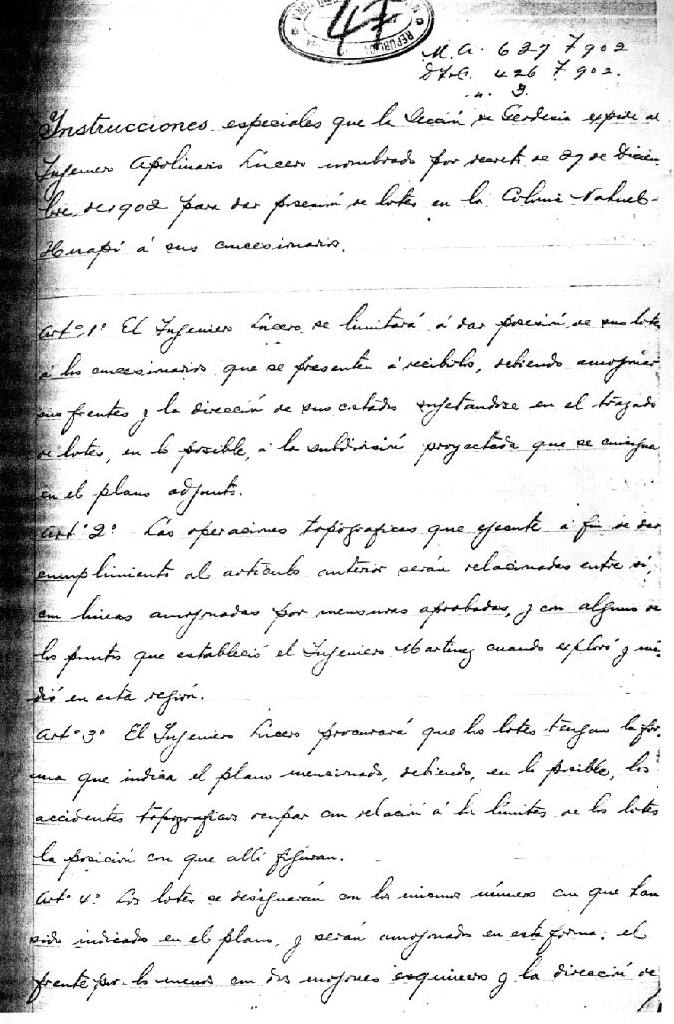 47
REPUBLICA
M. A. 627 7 902
D. T. C. 426 7 902.
n. 3.
Instrucciones especiales que la Sección de Geodesia expide al
Ingeniero Apolinario Lucero nombrado por decreto de 27 de Diciem
bre de 1902 para dar posesión de lotes en la Colonia Nahuel-
Huapí á sus concesionarios.
Art.º 1º El Ingeniero Lucero se limitará á dar posesión de sus lotes
á los concesionarios que se presenten á recibirlos, debiendo amojonar
sus frentes y la dirección de sus costados sujetandose en el trazado
de lotes, en lo posible, á la subdivisión proyectada que se consigna
en el plano adjunto.
Art.º 2º Las operaciones topograficas que ejecute á fin de dar
cumplimiento al artículo anterior serán relacionadas entre sí,
con lineas amojonadas por mensuras aprobadas, y con alguno de
los puntos que estableció el Ingeniero Martinez cuando exploró y mi-
dió en esta región.
Art.º 3º El Ingeniero Lucero procurará que los lotes tengan la for-
ma que indica el plano mencionado, debiendo, en lo posible, los
accidentes topograficos ocupar con relación á los límites de los lotes
la posición con que allí figuran.
Art.º 4º Los lotes se designarán con los mismos números con que han
sido indicados en el plano, y serán amojonados en esta forma: el
frente por lo menos con dos mojones esquineros y la dirección de